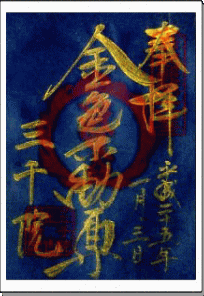 奉拝
平成二十五年
一月三日
金色不動尊
三千院